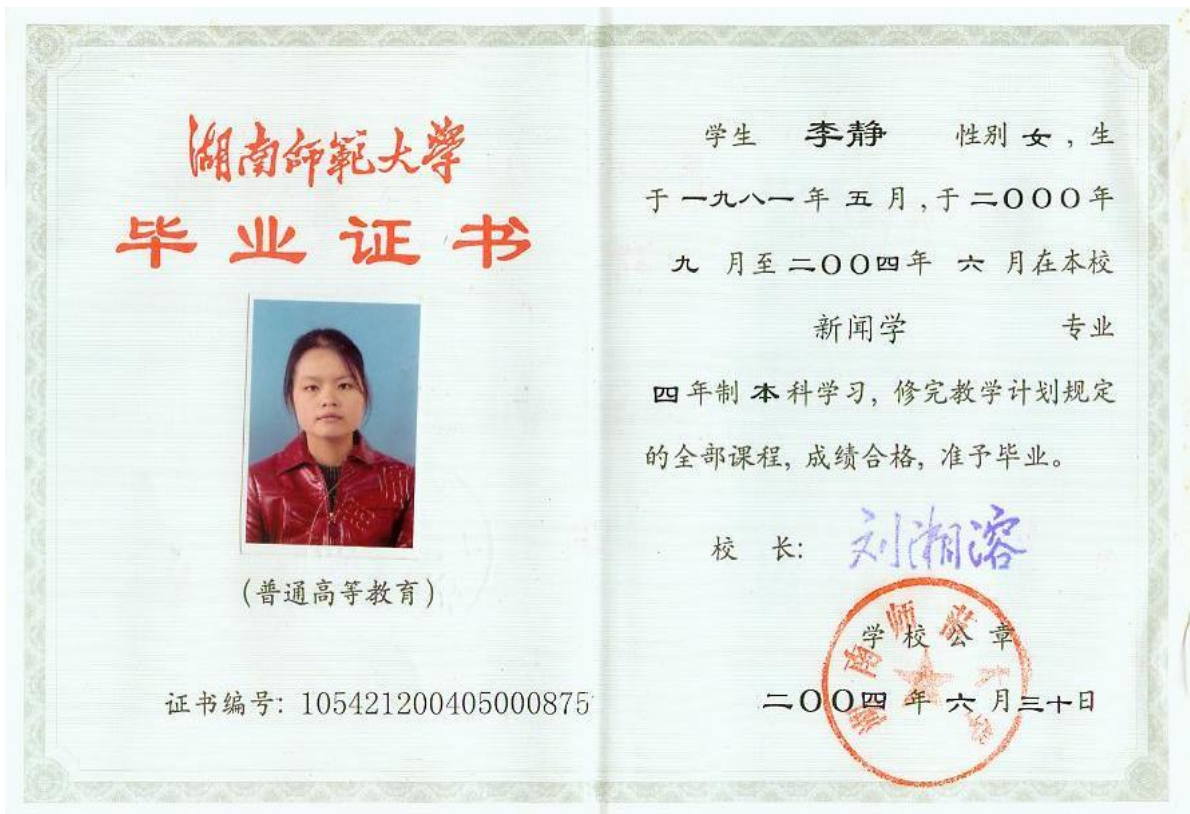 湖南师範大学
毕业证书
(普通高等教育)
证书编号: 105421200405000875
学生 李静 性别 女, 生
于 一九八一 年 五 月, 于 二〇〇〇年
九 月至 二〇〇四年 六 月在本校
新闻学 专业
四 年制 本 科学习, 修完教学计划规定
的全部课程, 成绩合格, 准予毕业。
校 长: 刘湘溶
学校公章
湖南师范大学
二〇〇四 年 六 月三十日